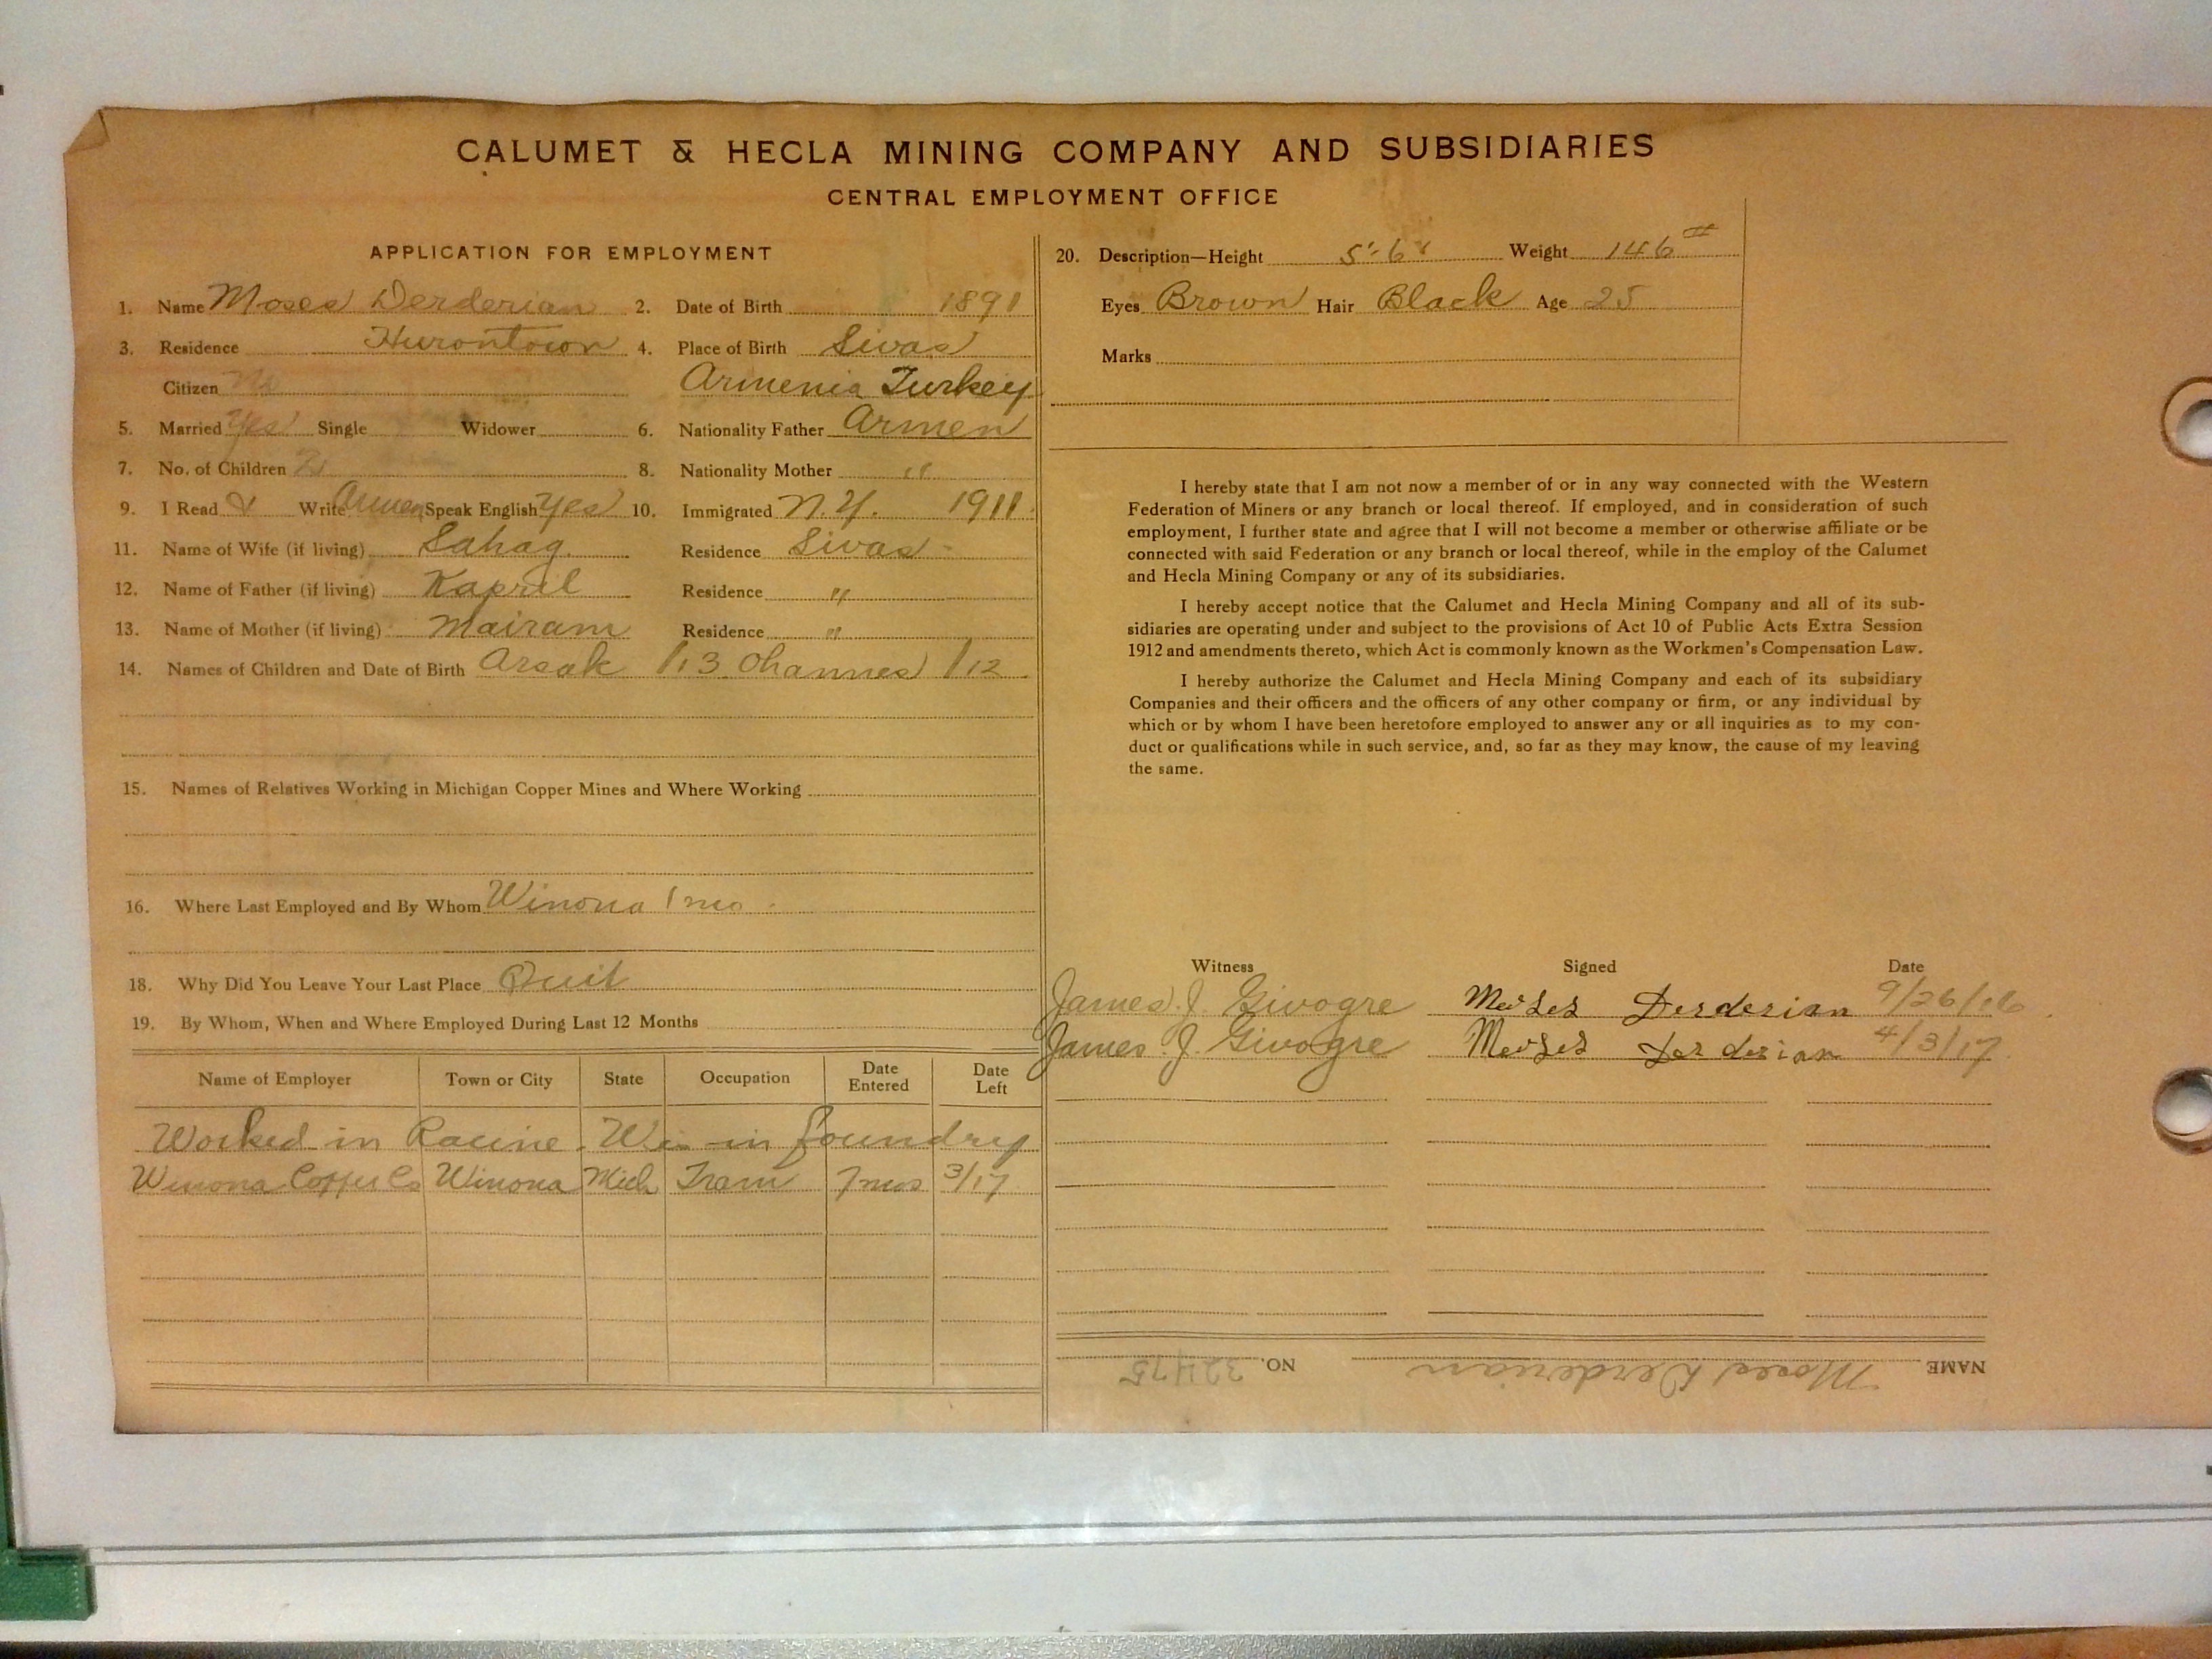 CALUMET & HECLA MINING COMPANY AND SUBSIDIARIES
CENTRAL EMPLOYMENT OFFICE
APPLICATION FOR EMPLOYMENT
1. Name Moses Derderian 2. Date of Birth 1891
3. Residence Hurontown 4. Place of Birth Sivas
Citizen No Armenia Turkey
5. Married Yes Single Widower 6. Nationality Father Armen
7. No. of Children 2 8. Nationality Mother "
9. I Read & Write Armen Speak English Yes 10. Immigrated N.Y. 1911
11. Name of Wife (if living) Sahag Residence Sivas
12. Name of Father (if living) Kapril Residence "
13. Name of Mother (if living) Mairam Residence "
14. Names of Children and Date of Birth Arsak /13 Ohannes /12
15. Names of Relatives Working in Michigan Copper Mines and Where Working
16. Where Last Employed and By Whom Winona 1 mo.
18. Why Did You Leave Your Last Place Quit
19. By Whom, When and Where Employed During Last 12 Months
Name of Employer Town or City State Occupation Date Entered Date Left
Worked in Racine. Wis in foundry
Winona Copper Co Winona Mich Tram 7 mos 3/17
20. Description—Height 5'-6" Weight 146 #
Eyes Brown Hair Black Age 25
Marks
I hereby state that I am not now a member of or in any way connected with the Western
Federation of Miners or any branch or local thereof. If employed, and in consideration of such
employment, I further state and agree that I will not become a member or otherwise affiliate or be
connected with said Federation or any branch or local thereof, while in the employ of the Calumet
and Hecla Mining Company or any of its subsidiaries.
I hereby accept notice that the Calumet and Hecla Mining Company and all of its sub-
sidiaries are operating under and subject to the provisions of Act 10 of Public Acts Extra Session
1912 and amendments thereto, which Act is commonly known as the Workmen's Compensation Law.
I hereby authorize the Calumet and Hecla Mining Company and each of its subsidiary
Companies and their officers and the officers of any other company or firm, or any individual by
which or by whom I have been heretofore employed to answer any or all inquiries as to my con-
duct or qualifications while in such service, and, so far as they may know, the cause of my leaving
the same.
Witness Signed Date
James J. Givogre Moses Derderian 9/26/16
James J. Givogre Moses Derderian 4/3/17
NAME Moses Derderian NO. 32475